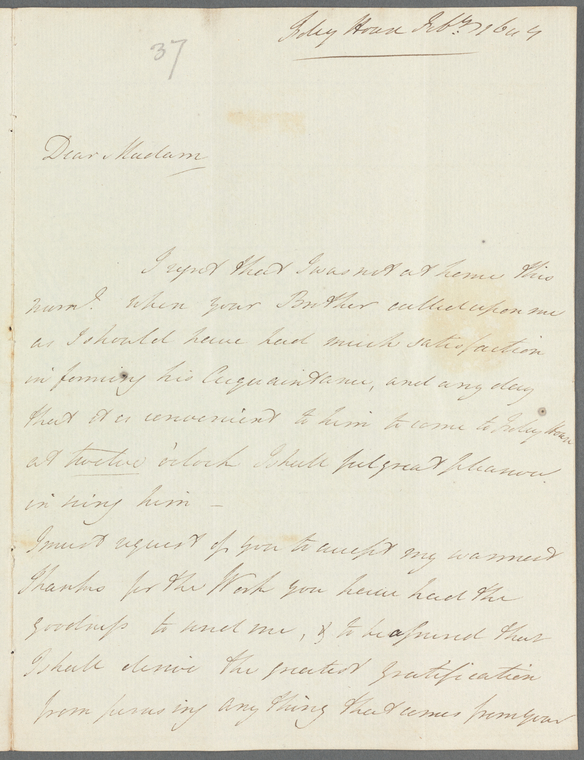 Foley House Feb.ry
37
Dear Madam
I regret that I was not at home this
morn.g when your Brother called upon me
as I should have had much satisfaction
in forming his Acquaintance, and any day
that it is convenient to him to come to Foley House
at twelve o'clock I shall feel great pleasure
in seing him –
I must request of you to accept my warmest
thanks for the Work you have had the
goodness to send me, & to be assured that
I shall derive the greatest gratification
from perusing any thing that comes from your